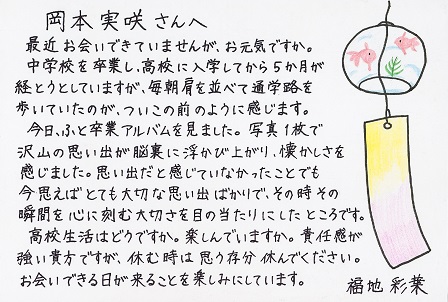 岡本実咲さんへ
最近お会いできていませんが、お元気ですか。
中学校を卒業し、高校に入学してから5か月が
経とうとしていますが、毎朝肩を並べて通学路を
歩いていたのが、ついこの前のように感じます。
今日、ふと卒業アルバムを見ました。写真1枚で
沢山の思い出が脳裏に浮かび上がり、懐かしさを
感じました。思い出だと感じていなかったことでも
今思えばとても大切な思い出ばかりで、その時その
瞬間を心に刻む大切さを目の当たりにしたところです。
高校生活はどうですか。楽しんでいますか。責任感が
強い貴方ですが、休む時は思う存分休んでください。
お会いできる日が来ることを楽しみにしています。
福地彩葉